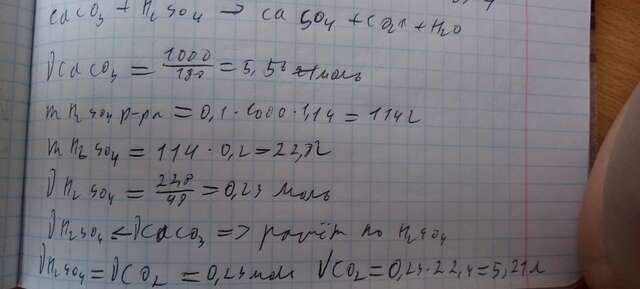 CaCO3 + H2SO4 → CaSO4 + CO2↑ + H2O
νCaCO3 = 1000/180 = 5,56 моль
m H2SO4 р-ра = 0,1 · 1000 · 1,14 = 114г
m H2SO4 = 114 · 0,2 = 22,8г
νH2SO4 = 22,8/98 = 0,23 моль
νH2SO4 < νCaCO3 => расчёт по H2SO4
νH2SO4 = νCO2 = 0,23 моль VCO2 = 0,23 · 22,4 = 5,21 л